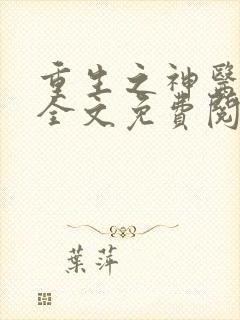 重生之神醫
全文免費閱
葉萍